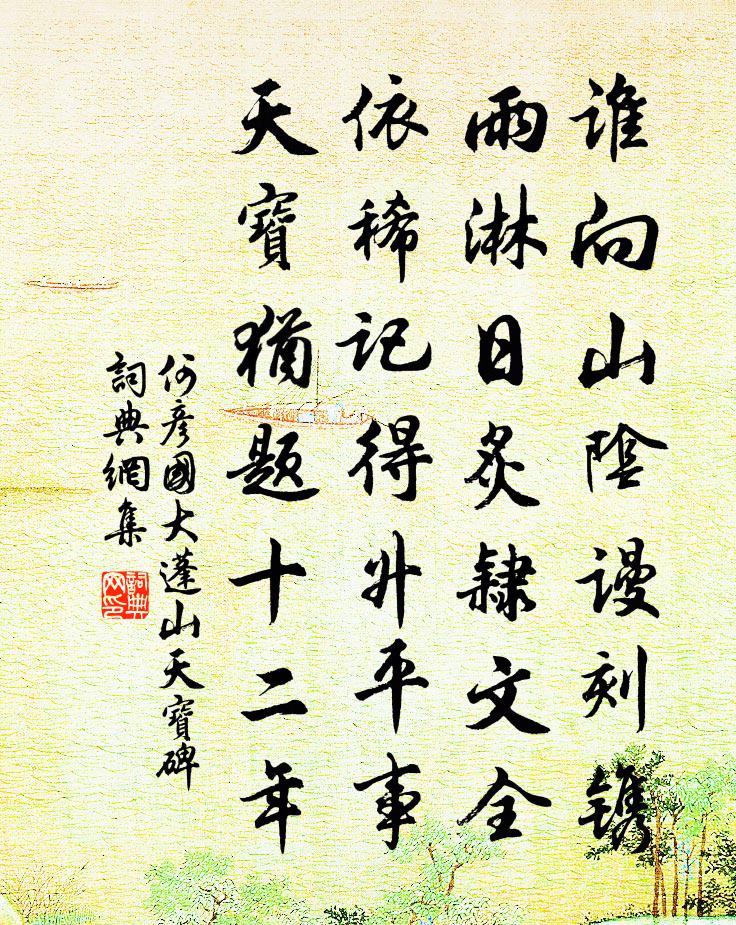 谁向山陰谩刻镌
雨淋日炙隸文全
依稀記得升平事
天寶猶题十二年
何彦國大蓬山天寶碑
詞典網集
詞典网印